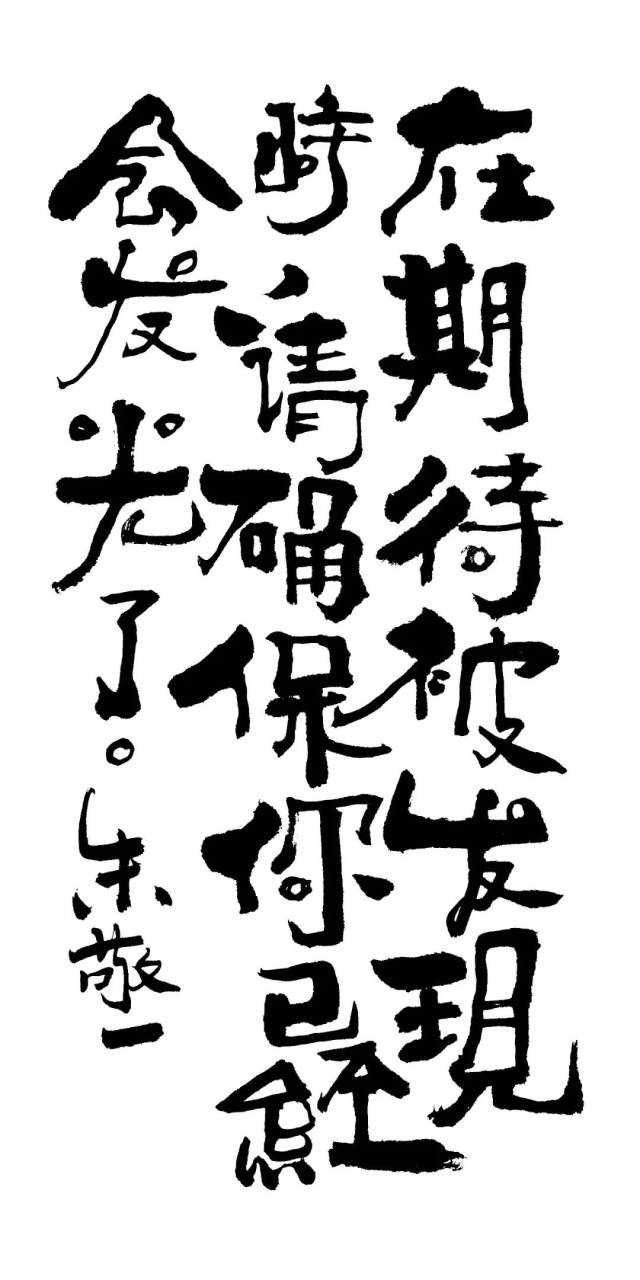 在期待被发現
時、请确保你已經
会发光了。朱敬一